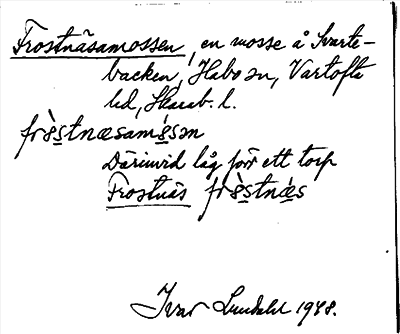 Frostnäsamossen, en mosse å Svarte-
backen, Habo sn, Vartofta
hd, Skarab. l.
frò̀stnæsamósən
Därinvid låg förr ett torp
Frostnäs frò̀stnæ̀s
Ivar Lundahl 1948.